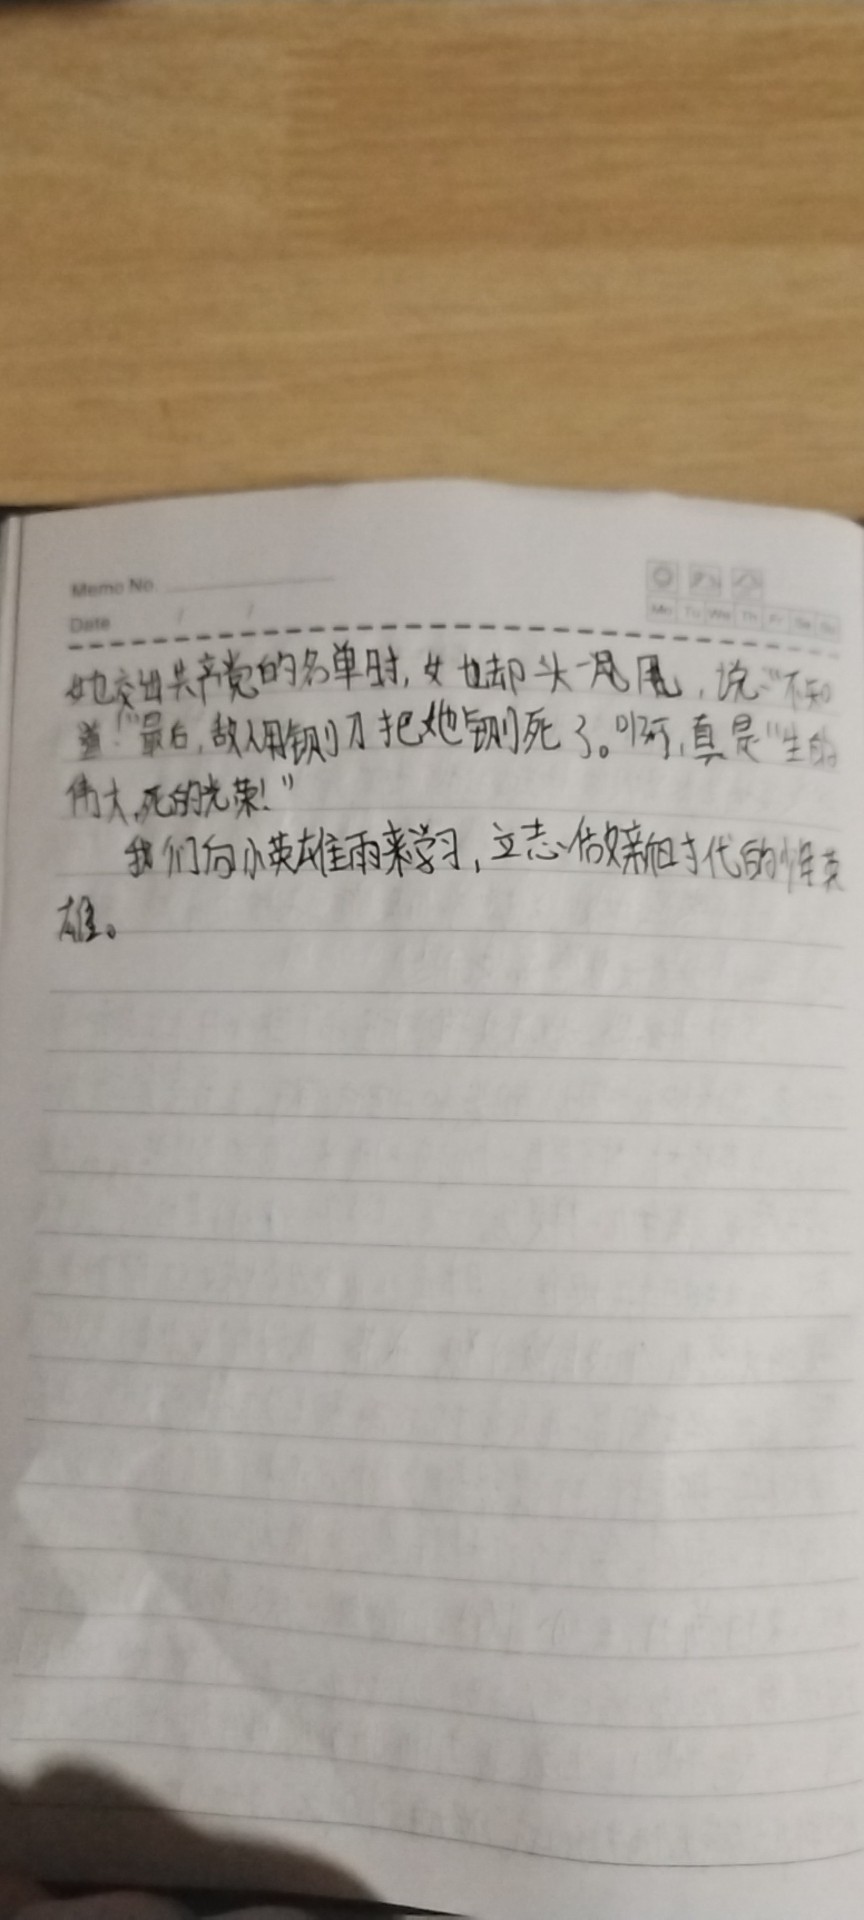 Memo No.
Date / /
Mo Tu We Th Fr Sa Su
她交出共产党的名单时,她却头一甩,说:"不知
道!"最后,敌人用铡刀把她铡死了。啊,真是"生的
伟大,死的光荣!"
我们向小英雄雨来学习,立志做好新时代的少年英
雄。